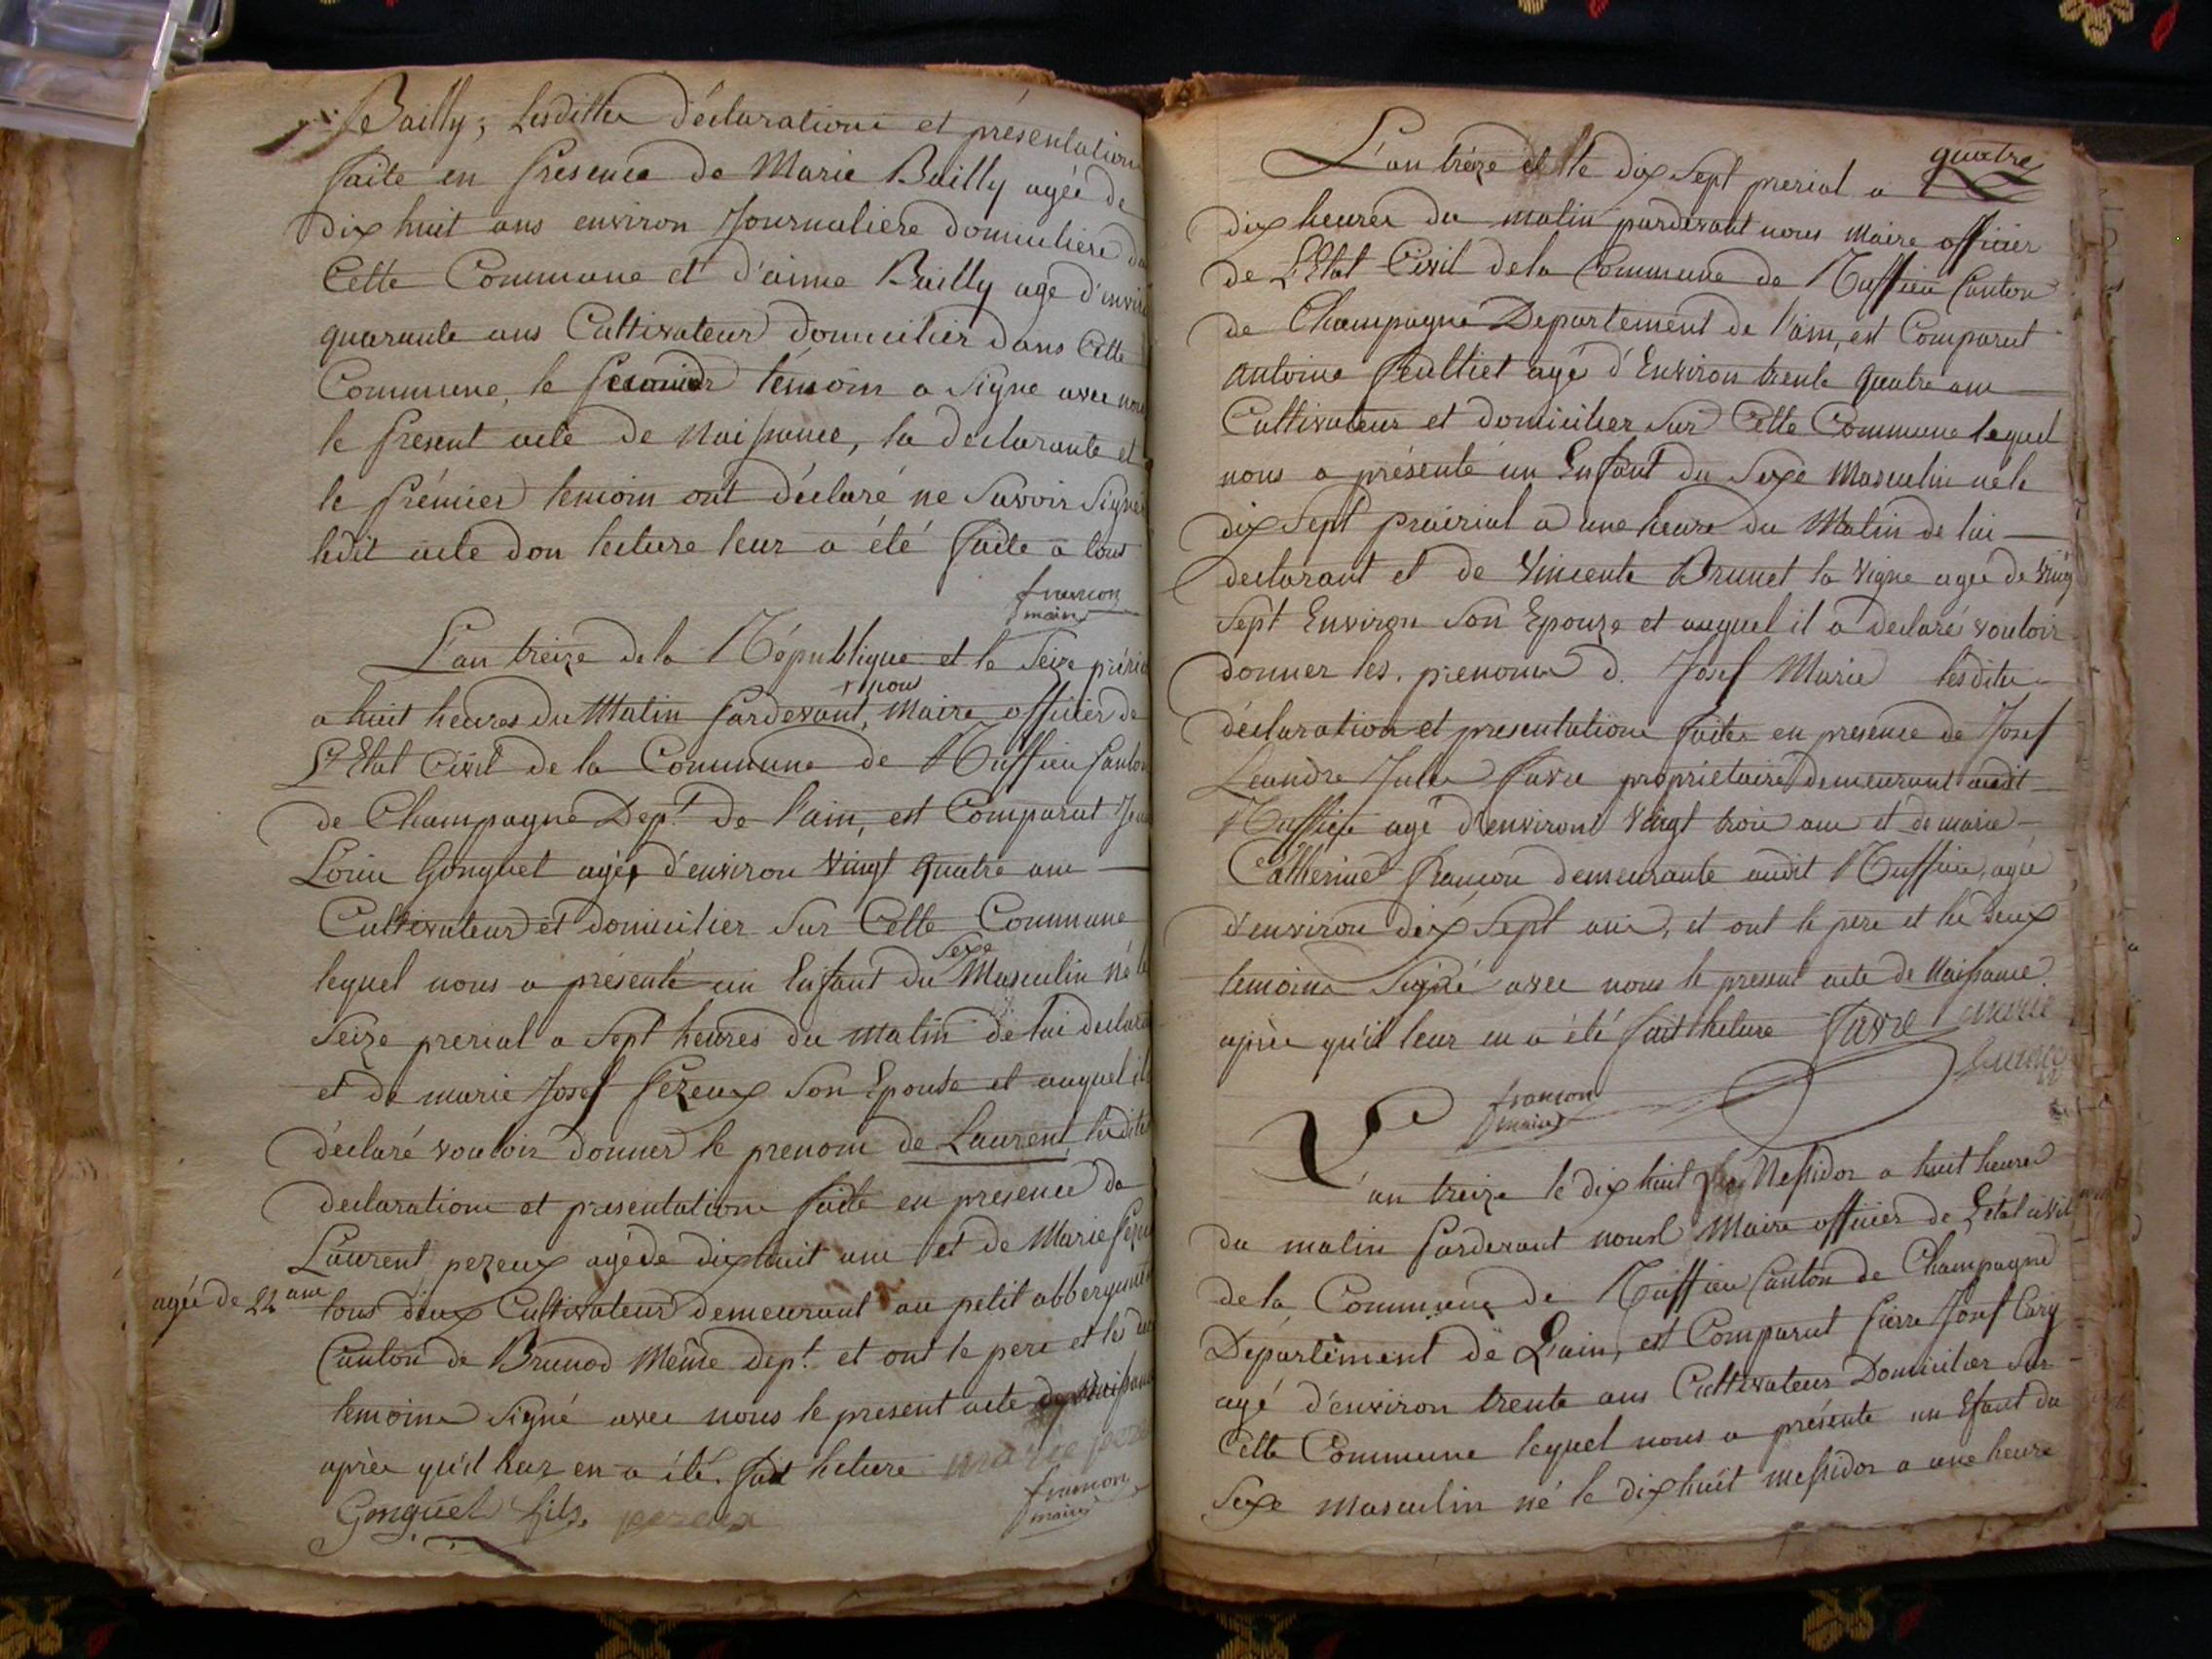 Bailly, lesdittes déclarations et présentations
faite en présence de Marie Bailly agée de
dix huit ans environ Journaliere domiciliere da
Cette Commune et d'aimé Bailly agé d'envir
quarante ans Cultivateur domicilier dans Cette
Commune, le témoin a Signé avec nous
le présent acte de Naissance, la déclarante et
le prémier temoin ont déclaré ne Savoir Signer
ledit acte don lecture leur a été faite a tous
françon
maire
L'an treize de la République et le Seize préria
+ nous
a huit heures du Matin pardevant, Maire officier de
L'Etat Civil de la Commune de Ruffieu Canton
de Champagne Dept. de l'ain, est Comparut
Gonguet agé, d'environ vingt quatre ans
Cultivateur et domicilier Sur Cette Commune
Sexe
lequel nous a présenté un Enfant du Masculin né le
Seize prerial a Sept heures du matin de lui déclara
et de marie Josef Pezeux Son Epouse et auquel il
déclaré vouloir donner le prenom de Laurent, lesdites
declarations et presentations faite en présence de
Laurent pezeux agé de dix huit ans et de Marie Pezeu
agée de 22 ans tous deux Cultivateur demeurant au petit abbergemen
Canton de Brunod Même dept. et ont le pere et les deu
temoins Signé avec nous le présent acte de Naissanc
après qu'il leur en a été fait lecture marie peze
Gonguet fils. pezeux françon
maire
quatre
L'an treize et le dix Sept prerial a
dix heures du matin pardevant nous Maire officier
de L'Etat Civil de la Commune de Ruffieu Canton
de Champagne Departement de l'ain, est Comparut
antoine Peultiet agé d'Environ trente quatre ans
Cultivateur et domicilier Sur Cette Commune lequel
nous a présenté un Enfant du Sexe Masculin né le
dix Sept prairial a une heure du Matin de lui
declarant et de Vincente Brunet la Vigne agée de Vingt
Sept Environ Son Epouze et auquel il a declaré vouloir
donner les prenoms d. Josef Marie lesdites
déclaration et presentations faites en presence de Josef
Leandre Jules favre proprietaire demeurant audit
Ruffieu agé d'environ vingt trois ans et de marie
Catherine françon demeurante audit Ruffieu, agée
d'environ dix Sept ans, et ont le pere et les deux
temoins Signé avec nous le present acte de Naissance
après qu'il leur en a été fait lecture favre marie
françon
françon
maire
L'an treize le dix huit Messidor a huit heures
du matin pardevant nous Maire officier de L'état civil
de la Commune de Ruffieu Canton de Champagne
Département de L'ain, est Comparut pierre Josef Cary
agé d'environ trente ans Cultivateur Domicilier Sur
Cette Commune lequel nous a présenté un Efant du
Sexe masculin né le dix huit messidor a une heure